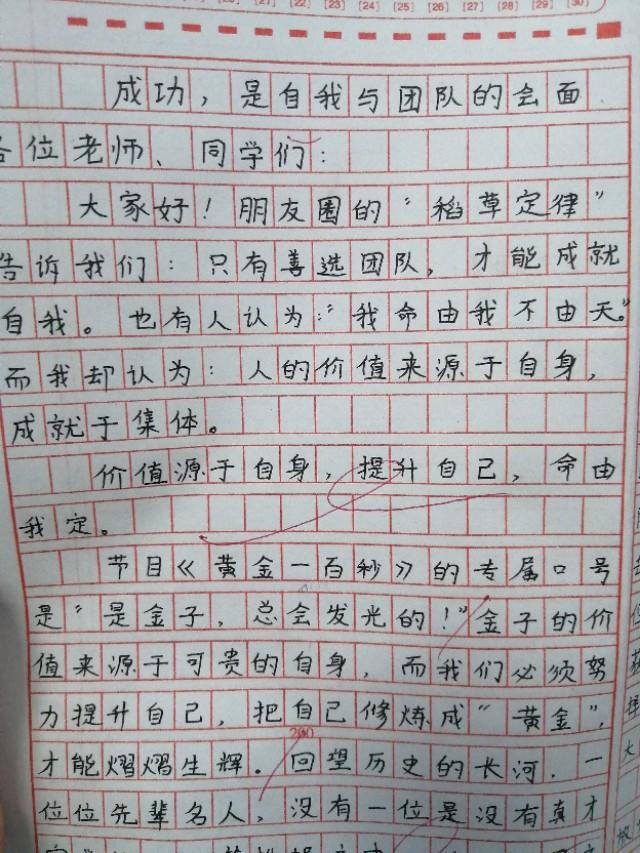 [21] [22] [23] [24] [25] [26] [27] [28] [29] [30]
成功，是自我与团队的会面
各位老师、同学们：
大家好！朋友圈的“稻草定律”
告诉我们：只有善选团队，才能成就
自我。也有人认为：“我命由我不由天。”
而我却认为：人的价值来源于自身，
成就于集体。
价值源于自身，提升自己，命由
我定。
节目《黄金一百秒》的专属口号
是“是金子，总会发光的！”金子的价
值来源于可贵的自身，而我们必须努
力提升自己，把自己修炼成“黄金”，
200
才能熠熠生辉。回望历史的长河，一
位位先辈名人，没有一位是没有真才